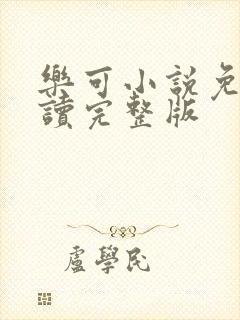 樂可小說免
讀完整版
盧學民